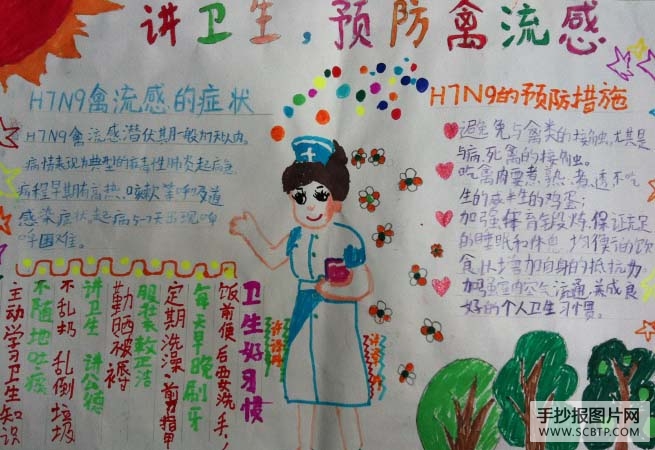 讲卫生,预防禽流感
H7N9禽流感的症状
H7N9禽流感潜伏期一般7天以内,
病情表现为典型的病毒性肺炎起病急
病程早期有高热、咳嗽等呼吸道
感染症状。起病5-7天出现呼
吸困难。
H7N9的预防措施
避免与禽类的接触,尤其是
与病、死禽的接触。
吃禽肉要煮熟、煮透不吃
生的或半生的鸡蛋;
加强体育锻炼,保证充足
的睡眠和休息,均衡的饮
食状增加自身的抵抗力。
加强室内空气流通,养成良
好的个人卫生习惯。
卫生好习惯
饭前便后要洗手,
每天早晚刷牙
定期洗澡 剪指甲
服装整洁
勤晒被褥
讲卫生 讲公德
不乱扔 乱倒垃圾
不随地吐痰
主动学习卫生知识
手抄报图片网
WWW.SCBTP.COM